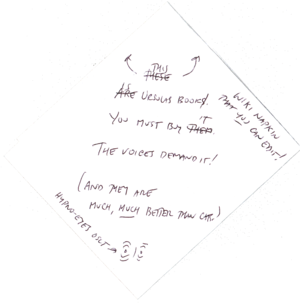 THIS
THESE
IS
ARE URSULAS BOOKS!
IT
YOU MUST BUY THEM.
THE VOICES DEMAND IT!
(AND THEY ARE
MUCH, MUCH BETTER THAN
WIKI NAPKIN
THAT YOU CAN EDIT!
HYPNO-EYES